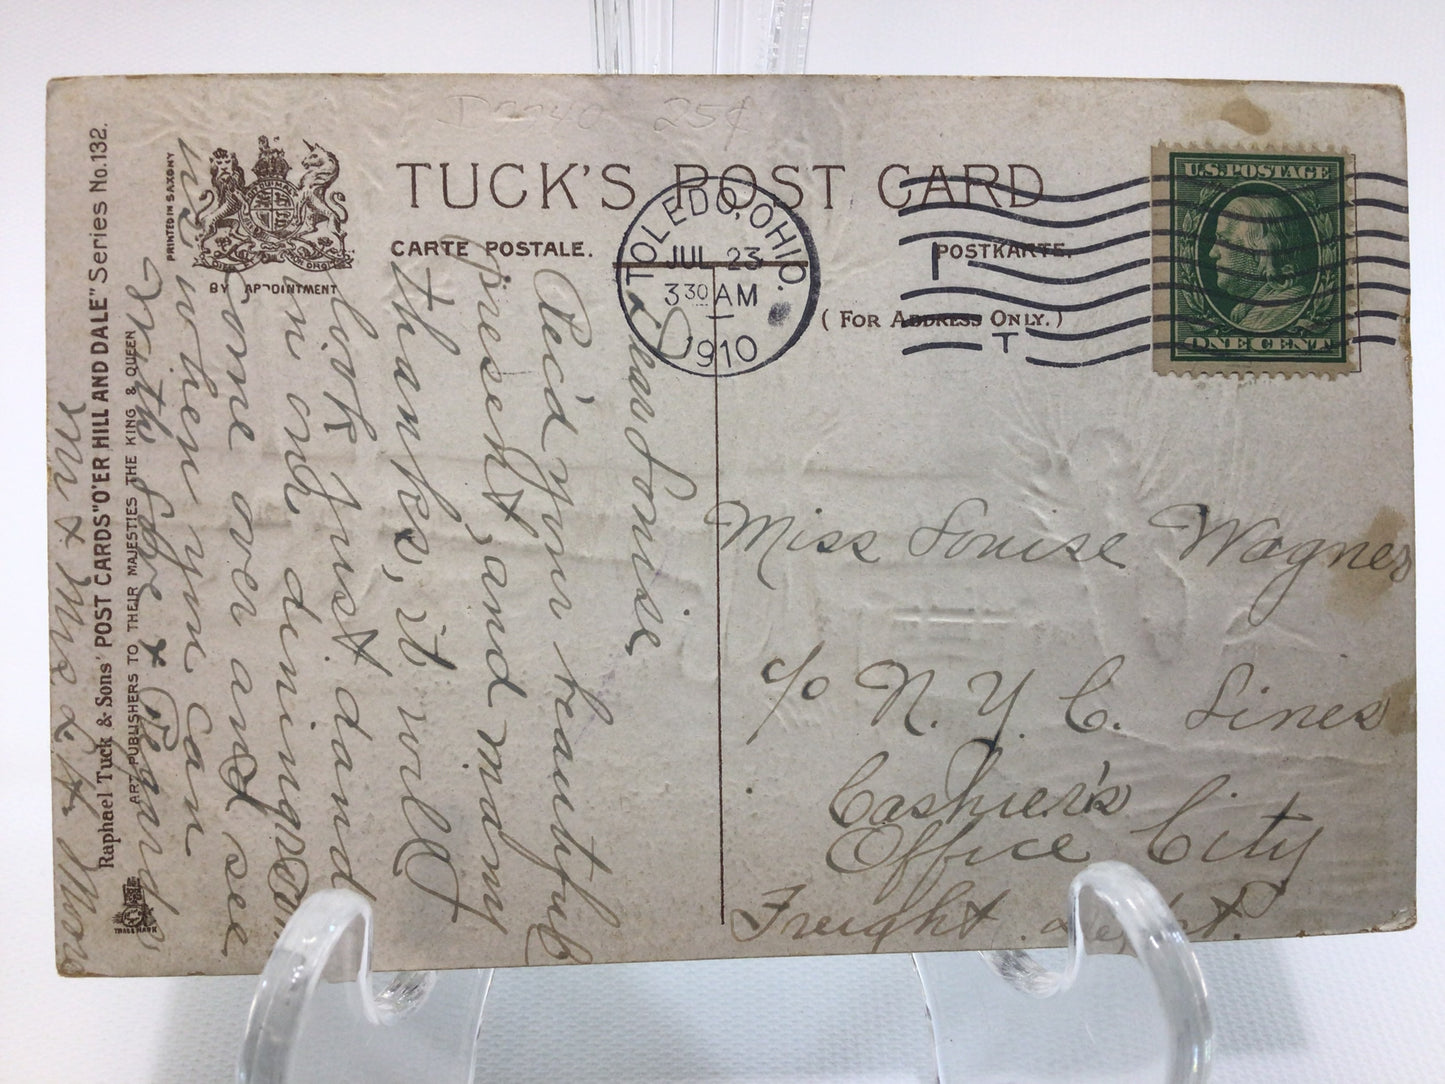 D2240 25¢
TUCK'S POST CARD
CARTE POSTALE.
POSTKARTE.
(FOR ADDRESS ONLY.)
PRINTED IN SAXONY
BY APPOINTMENT
Raphael Tuck & Sons' POST CARDS "O'ER HILL AND DALE" Series No. 132.
ART PUBLISHERS TO THEIR MAJESTIES THE KING & QUEEN
TRADE MARK
TOLEDO, OHIO.
JUL 23
3 30 AM
1910
T
U.S. POSTAGE
ONE CENT
Dear Louise
Rec'd your beautiful
present, and many
thanks, it will
look just dandy
in our dining room
Come over and see
us when you can
With love & Regards
Mr & Mrs A
Miss Louise Wagner
c/o N. Y. C. Lines
Cashier's
Office City
Freight Dep't.